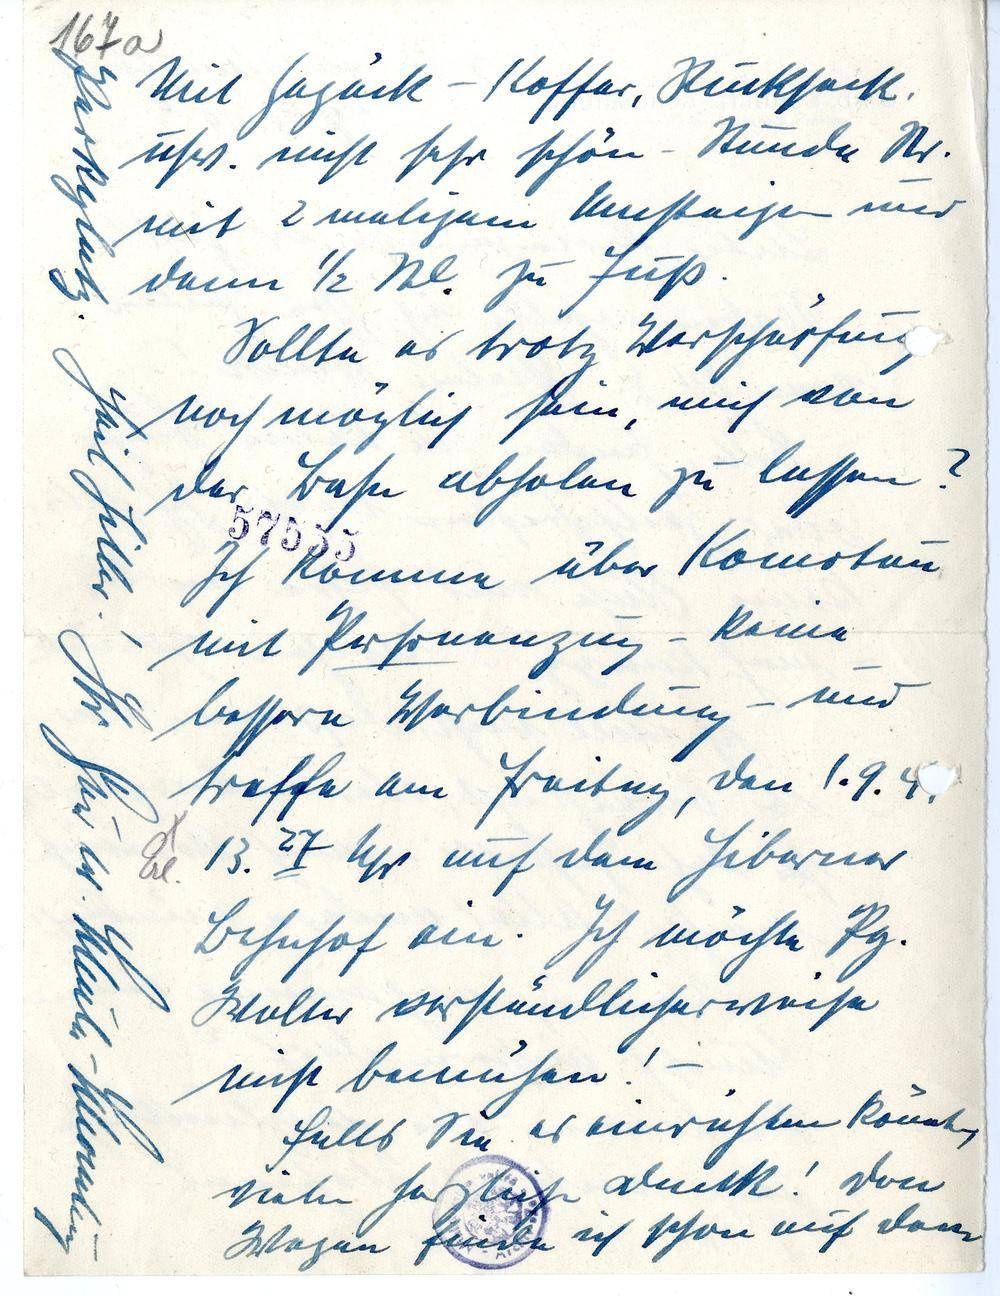 167a
mit Gepäck – Koffer, Rucksack,
usw. nicht sehr schön – Stunde
mit 2 maligem Umsteigen und
dann 1/2 St. zu Fuß.
Sollte es trotz Verschärfung
noch möglich sein, mich von
der Bahn abholen zu lassen?
57555
Ich komme über Komotau
mit Personenzug – keine
bessere Verbindung – und
treffe am Freitag, den 1.9.4
13.27 Uhr auf dem
Bahnhof ein. Ich möchte Pg.
Wolter verständlicherweise
nicht bemühen! –
Falls Sie es einrichten könnten,
vielen herzlichen Dank! Den
Wagen finde ich schon auf dem
Parkplatz. Heil Hitler! Ihr